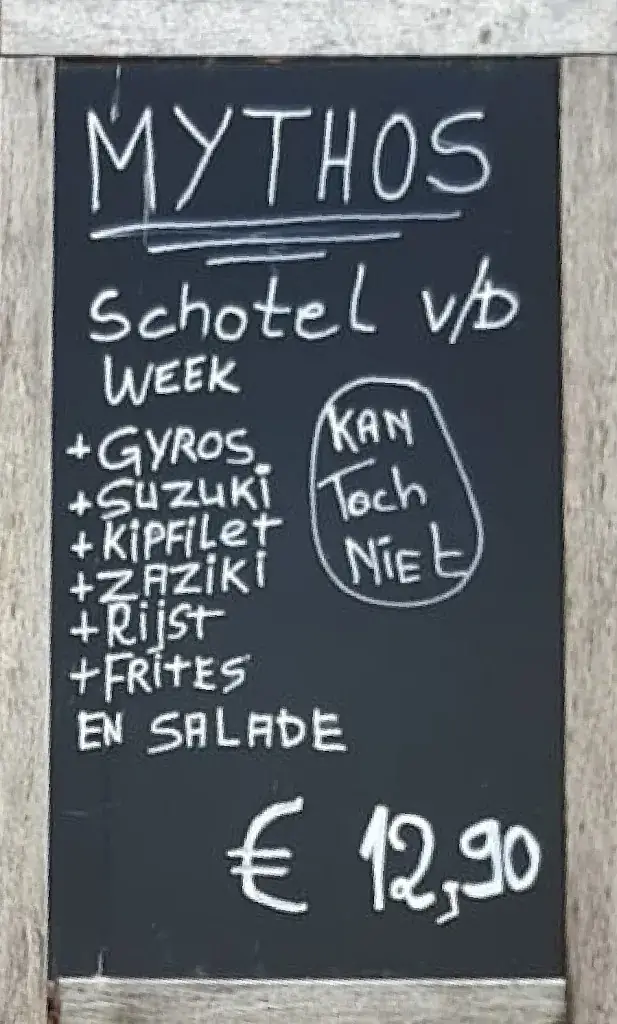 MYTHOS
Schotel v/D
WEEK
+GYROS
+SUZUKi
+KiPFiLet
+ZAZiKi
+Rijst
+FRitES
EN SALADE
KAN
Toch
NiEt
€ 12,90